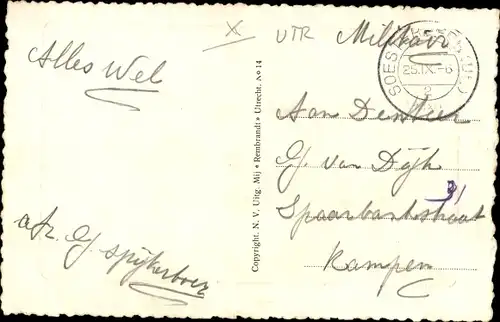 x UTR Militair
25.IX.-6
2
Alles Wel
Copyright. N. V. Uitg. Mij « Rembrandt » Utrecht. No 14
Aan Den Heer
G/. van Dijk
31
Spaarbankstraat
Kampen
afz. G/. Spijkerboer